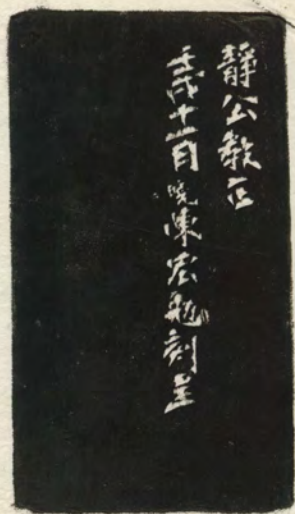 靜公教正
壬戌十一月晚陳宏勉刻呈